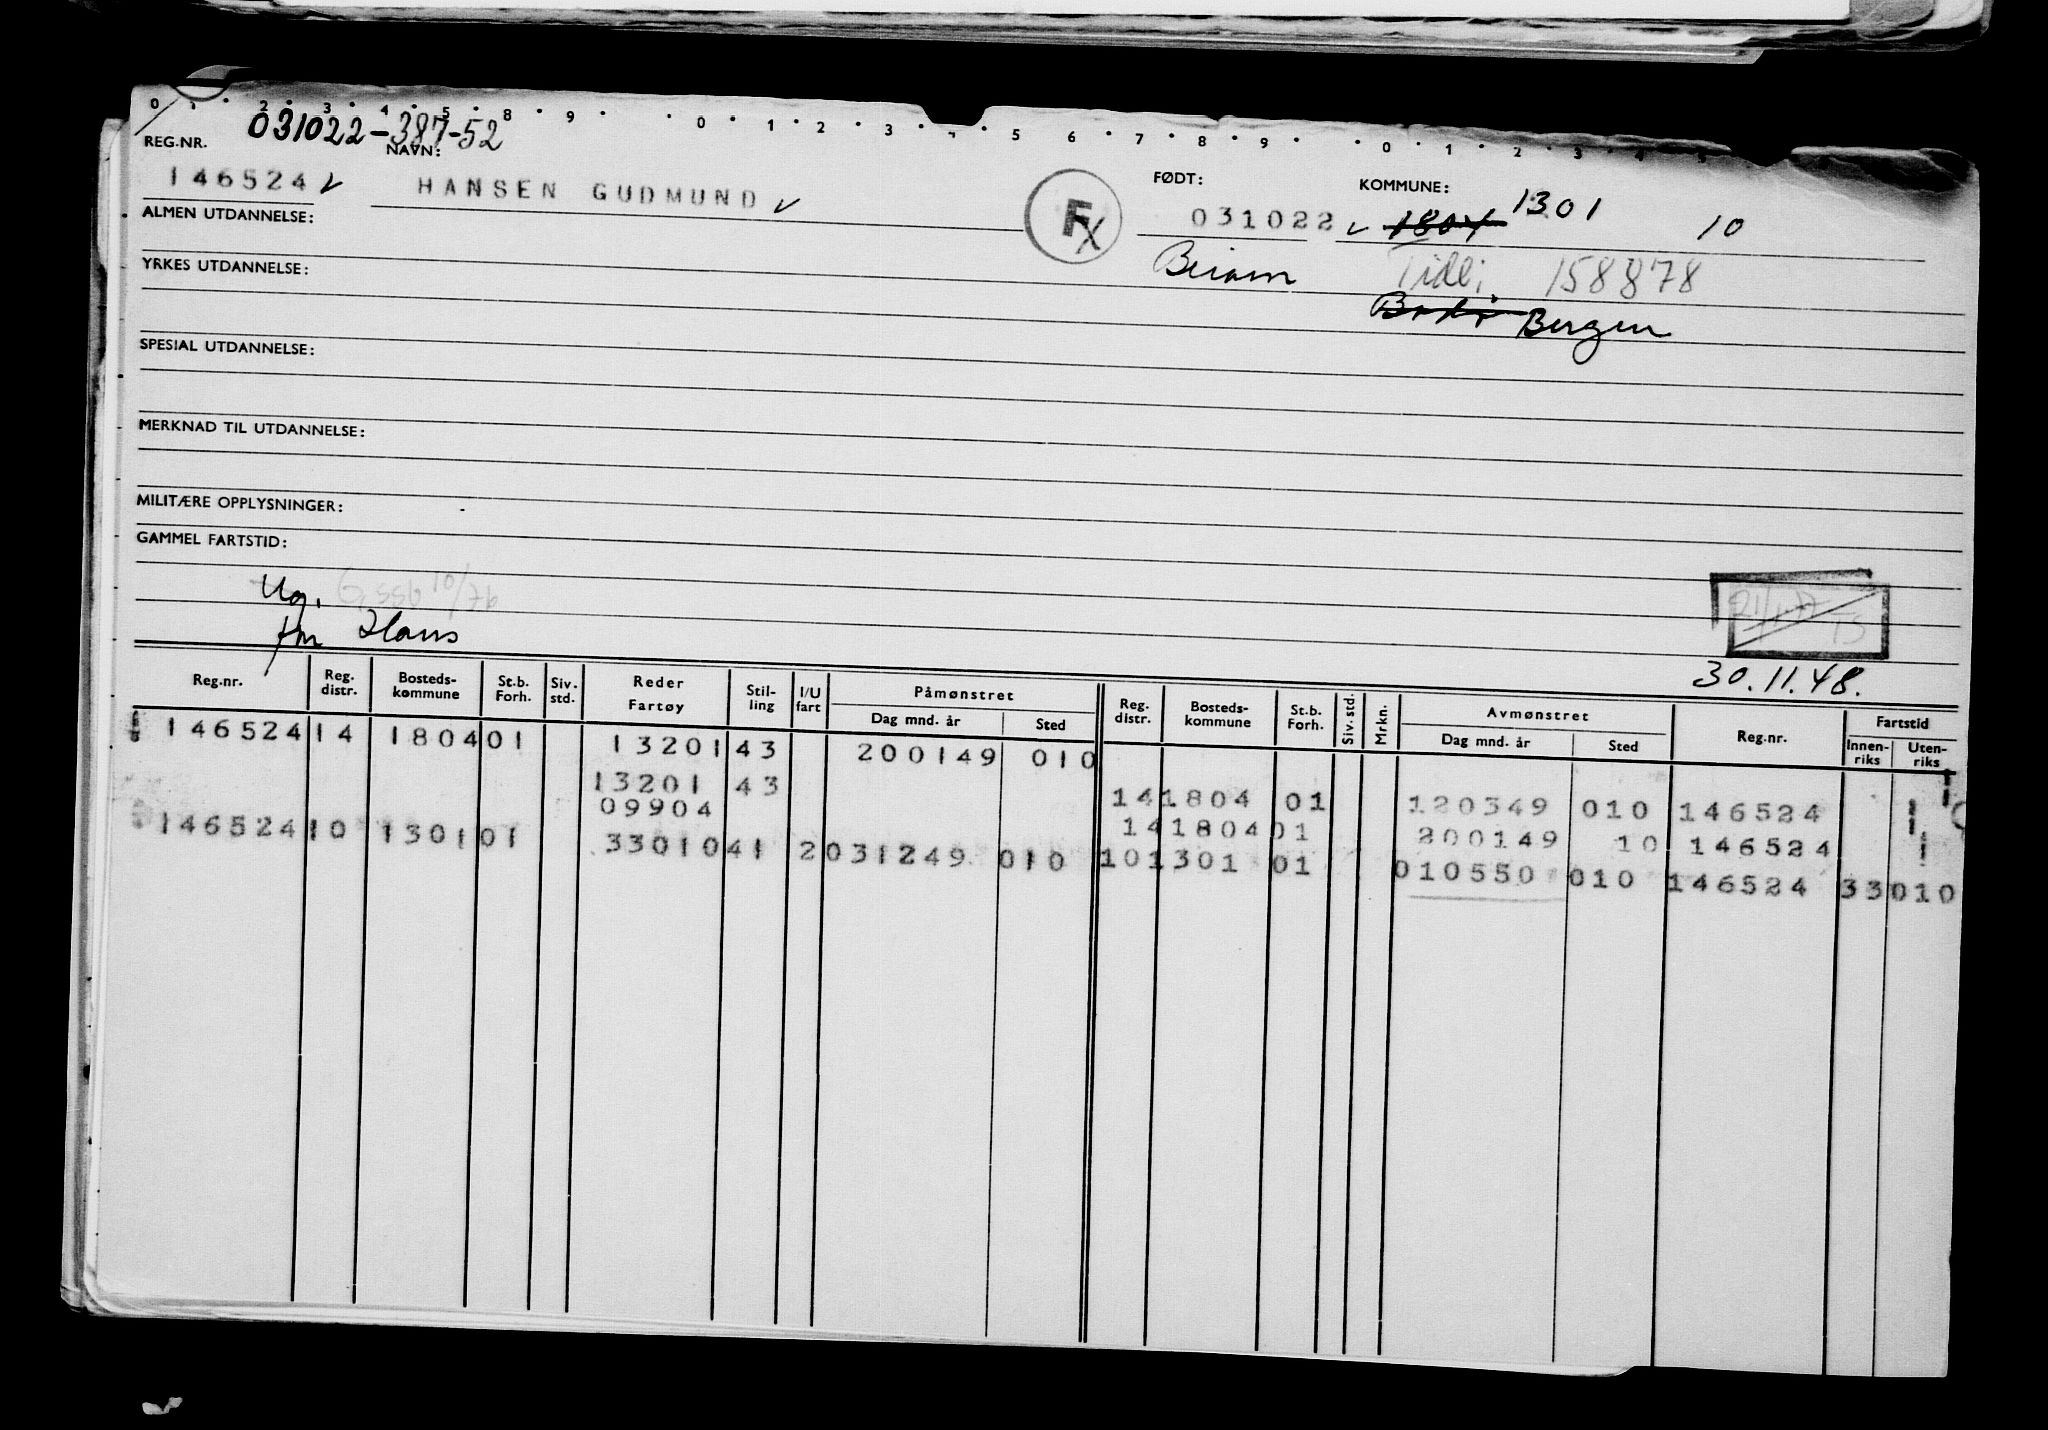 0 2 3 4 5 8 9 0 1 2 3 5 6 7 8 9 0 1 2 3 4 5
031022-387-52
REG.NR. NAVN: FØDT: KOMMUNE:
146524 HANSEN GUDMUND Fx 031022 1804 1301 10
ALMEN UTDANNELSE:
Beiarn Tidl; 158878
YRKES UTDANNELSE:
Bodø Bergen
SPESIAL UTDANNELSE:
MERKNAD TIL UTDANNELSE:
MILITÆRE OPPLYSNINGER:
GAMMEL FARTSTID:
Ug. 10/76
fm Hans
30.11.48.
Reg.nr. Reg. distr. Bosteds-kommune St.b. Forh. Siv. std. Reder Fartøy Stil-ling I/U fart Påmønstret Dag mnd. år Sted Reg. distr. Bosteds-kommune St.b. Forh. Siv. std. Mrkn. Avmønstret Dag mnd. år Sted Reg.nr. Fartstid Innen-riks Uten-riks
146524 14 1804 01 13201 43 200149 010
13201 43 14 1804 01 120349 010 146524 1
09904 14 1804 01 200149 10 146524 1
146524 10 1301 01 33010 41 2 031249 010 10 1301 01 010550 010 146524 33010